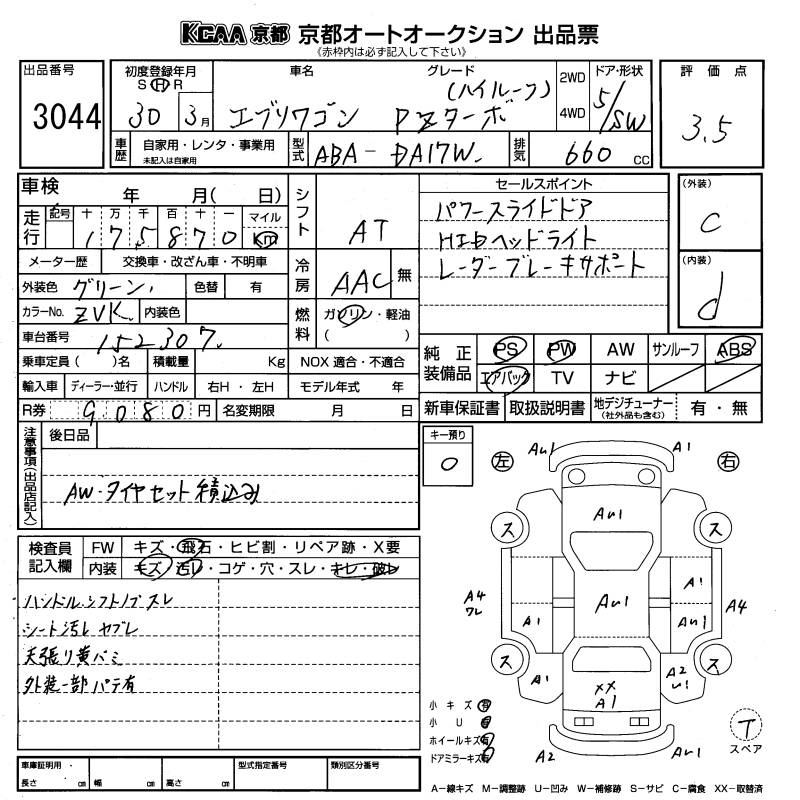 KCAA 京都 京都オートオークション 出品票
《赤枠内は必ず記入して下さい》
出品番号
3044
初度登録年月
S H R
30 3月
車名
エブリワゴン
グレード
(ハイルーフ)
PZターボ
2WD
4WD
ドア・形状
5/SW
評価点
3.5
車歴
自家用・レンタ・事業用
未記入は自家用
型式
ABA-DA17W
排気
660 cc
車検 年 月( 日)
走行
記号 十 万 千 百 十 一 マイル
175870 km
シフト
AT
セールスポイント
パワースライドドア
HIDヘッドライト
レーダーブレーキサポート
(外装)
C
(内装)
d
メーター歴 交換車・改ざん車・不明車
外装色 グリーン 色替 有
冷房
AAC 無
カラーNo. ZVK 内装色
燃料
ガソリン・軽油
( )
車台番号 152307
乗車定員( )名 積載量 Kg NOX 適合・不適合
輸入車 ディーラー・並行 ハンドル 右H・左H モデル年式 年
R券 9080円 名変期限 月 日
純正装備品
PS PW AW サンルーフ ABS
エアバック TV ナビ
新車保証書 取扱説明書 地デジチューナー (社外品も含む) 有・無
注意事項(出品店記入)
後日品
AW・タイヤセット積込み
キー預り
0
左 右
Au1 A1
Au1
ス ス
A1
A4 ワレ
Au1
A1 Au1
A4
ス ス
A1
A2 u1
XX A1
A2 Au1
検査員記入欄
FW キズ・飛石・ヒビ割・リペア跡・X要
内装 キズ・汚レ・コゲ・穴・スレ・キレ・破レ
ハンドル.シフトノブスレ
シート汚レ ヤブレ
天張り黄バミ
外装一部パテ有
小キズ 有
小U 有
ホイールキズ有
ドアミラーキズ有
T
スペア
車庫証明用
長さ cm 幅 cm 高さ cm
型式指定番号 類別区分番号
A−線キズ M−調整跡 U−凹み W−補修跡 S−サビ C−腐食 XX−取替済